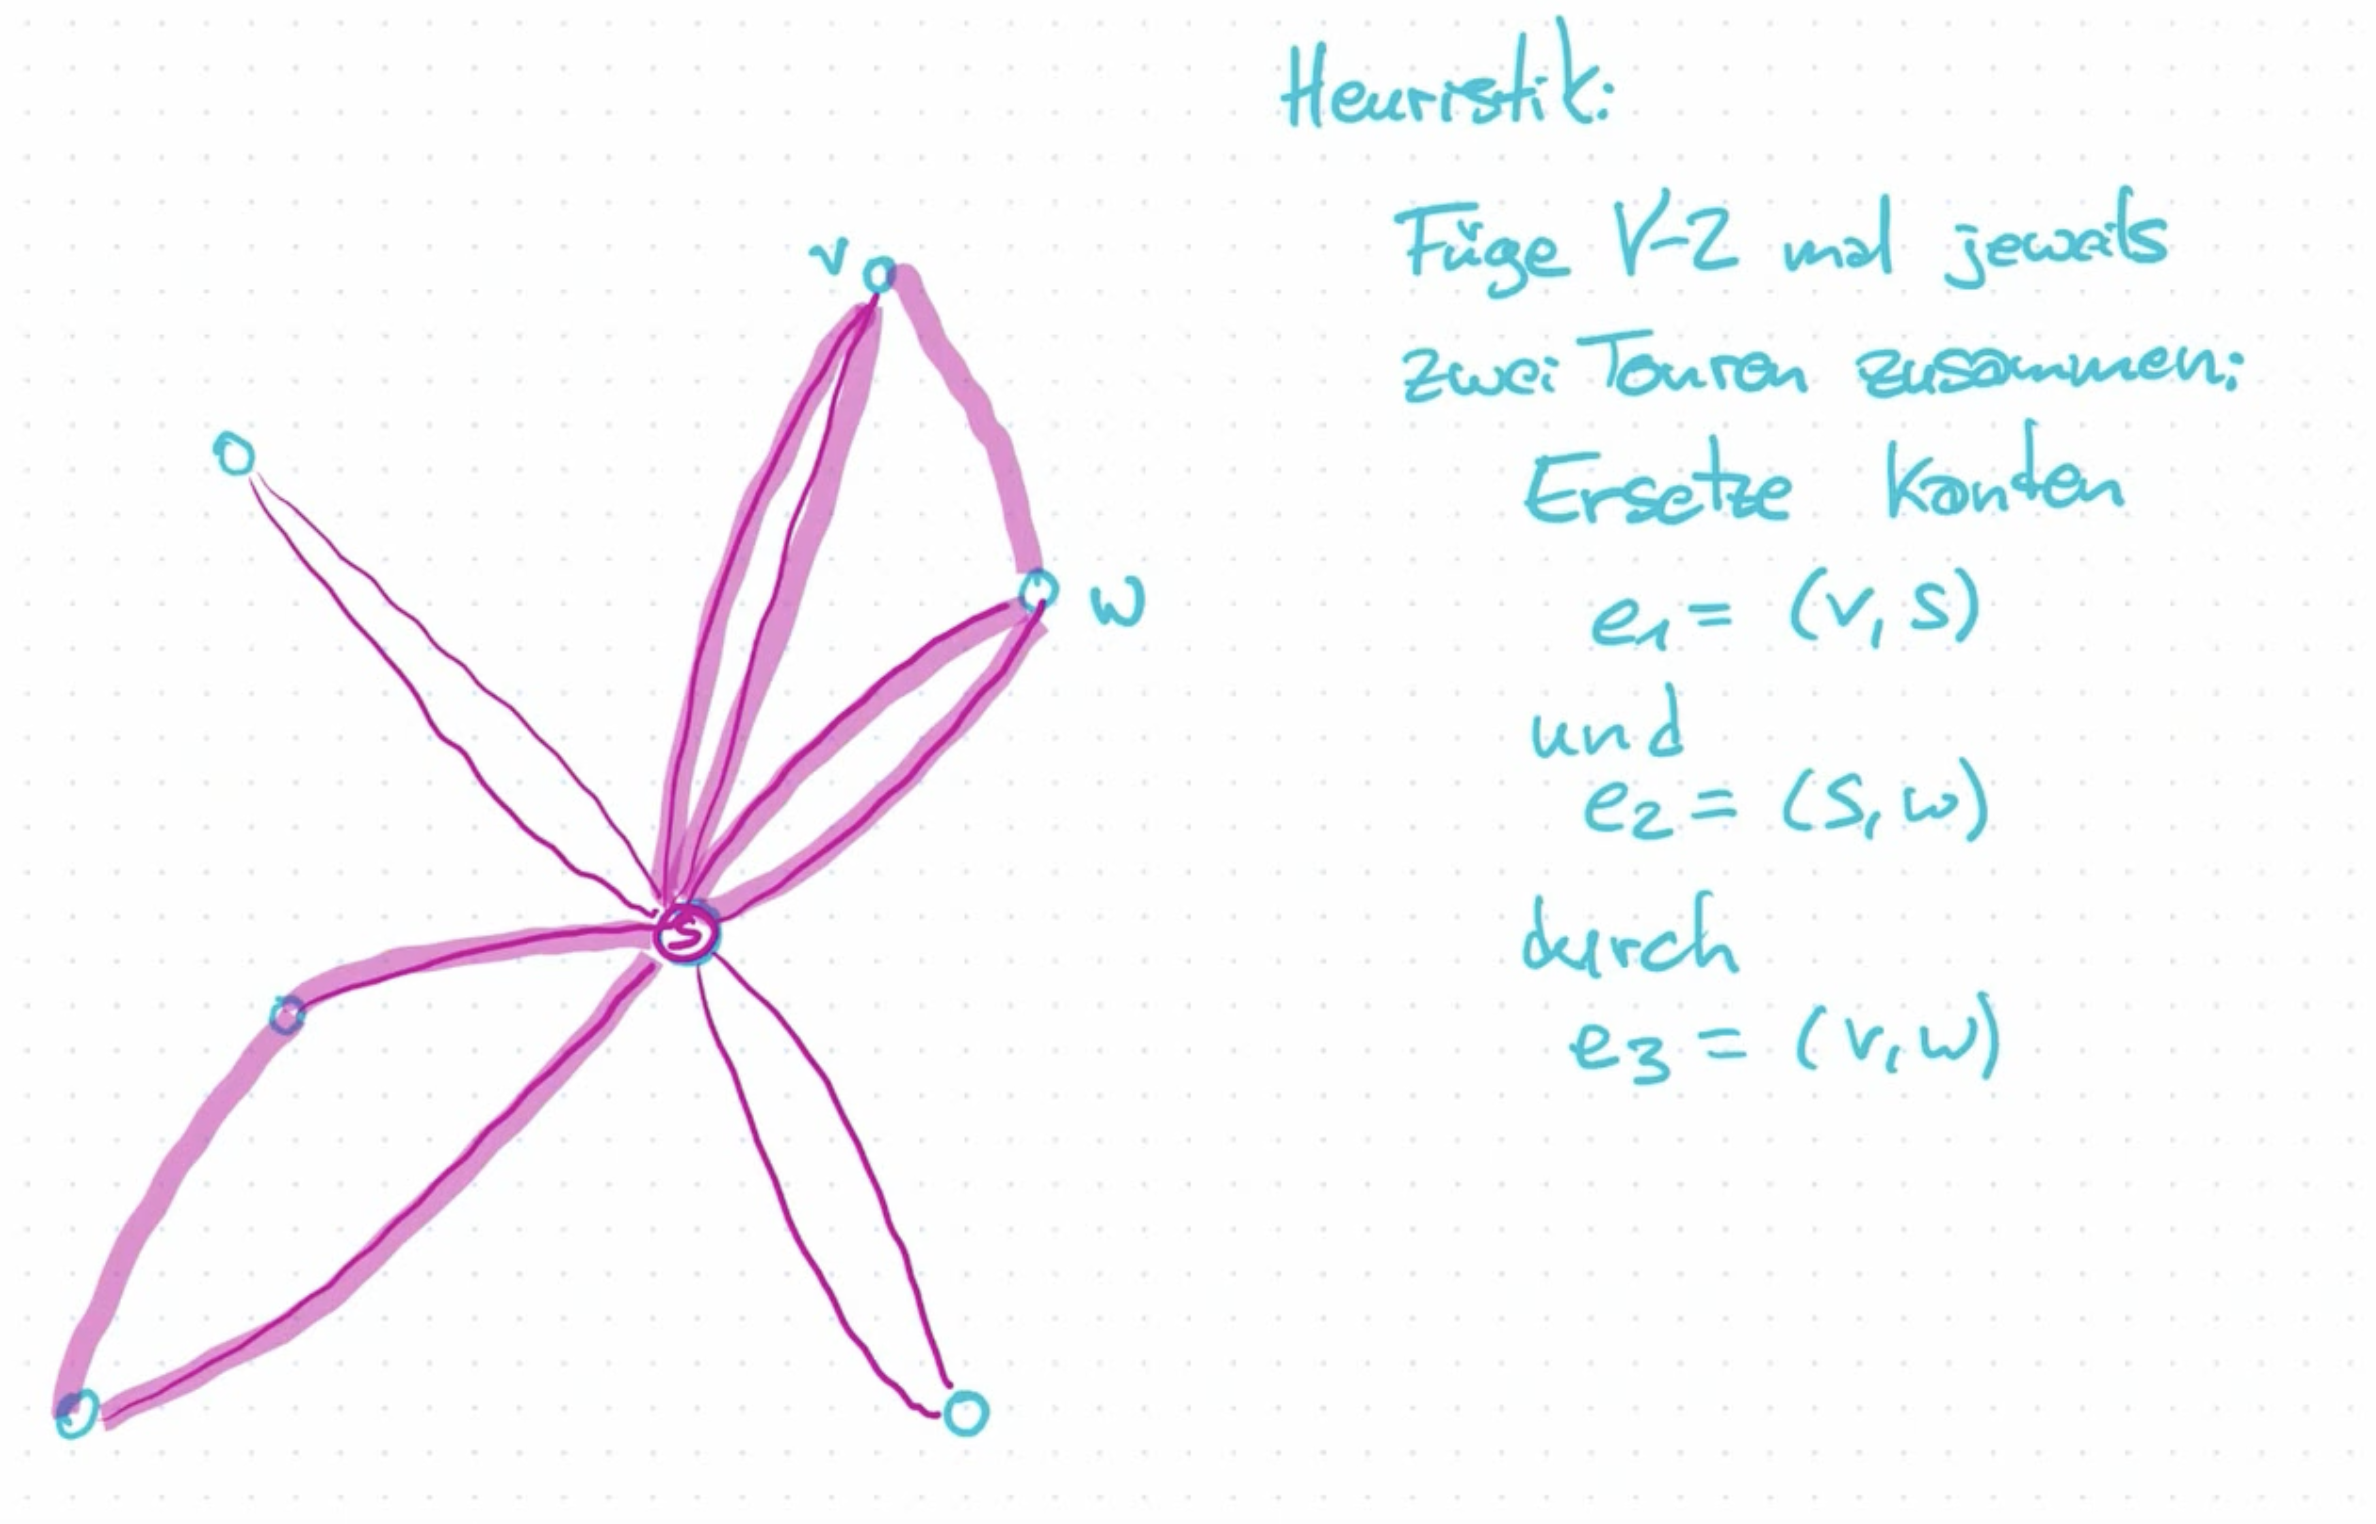 Heuristik:
Füge V-2 mal jeweils
zwei Touren zusammen:
Ersetze Kanten
e1 = (v, s)
und
e2 = (s, w)
durch
e3 = (v, w)
v
w
s